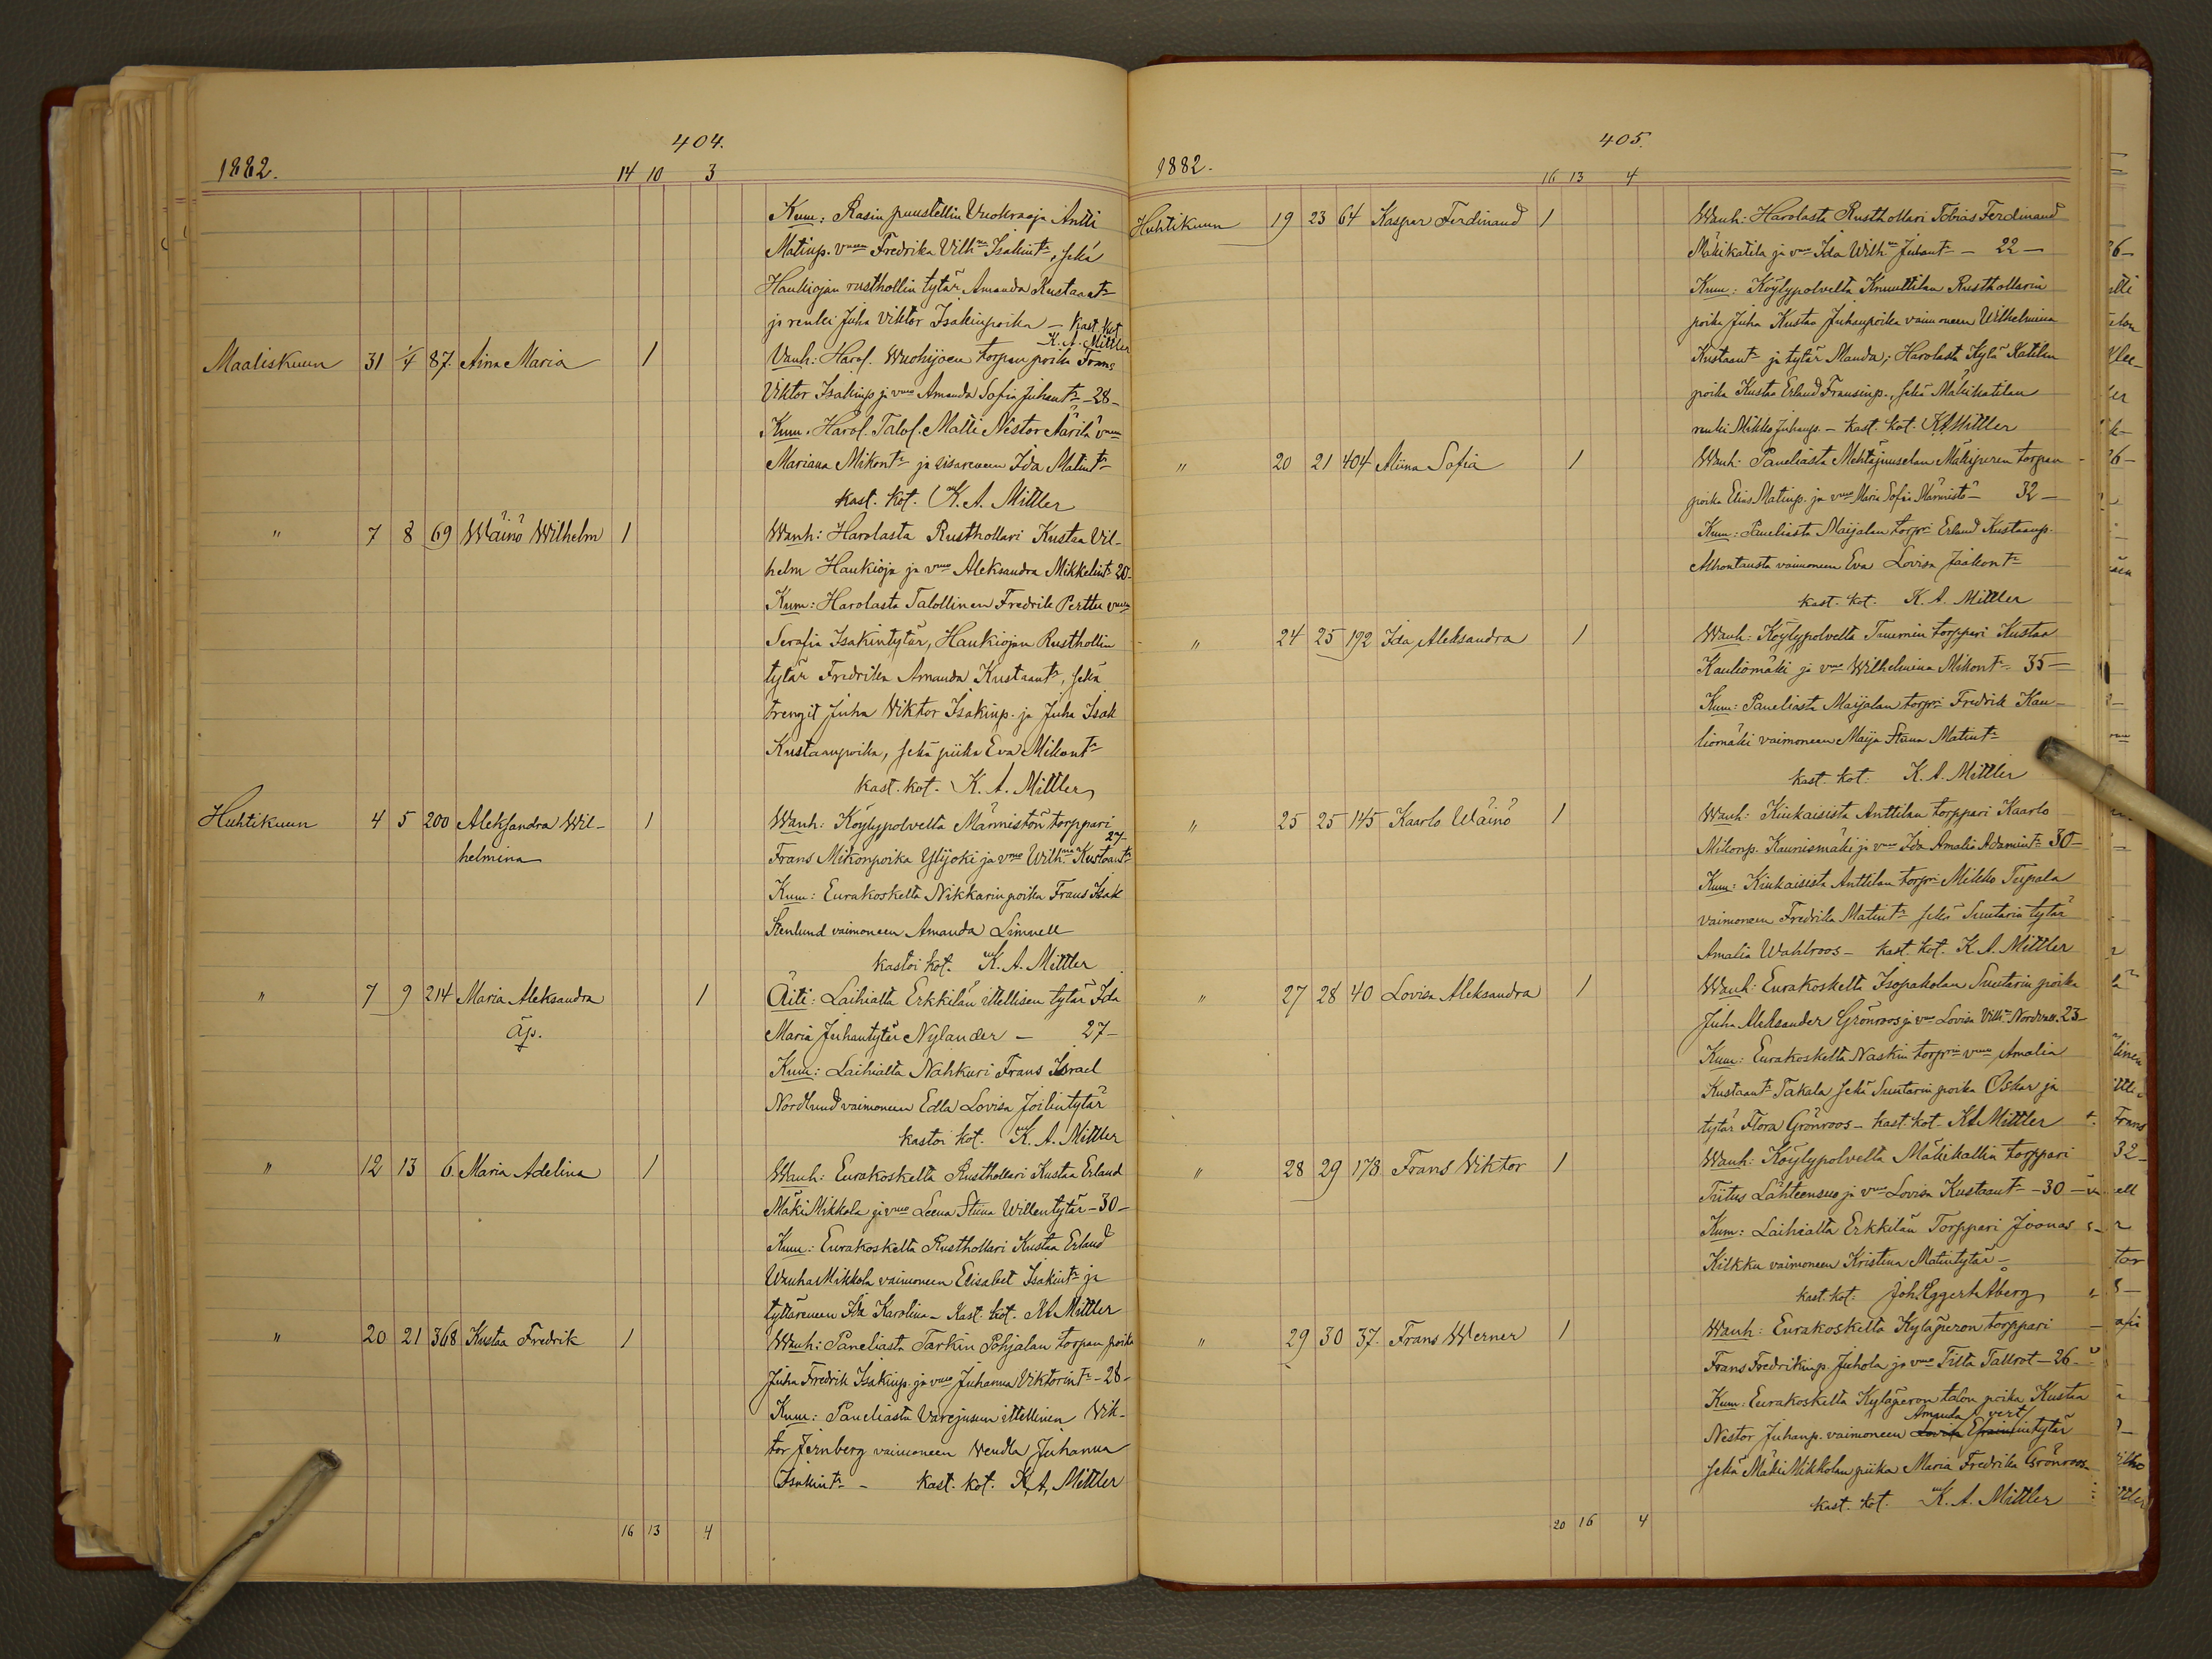 404.
1882.
14 10 3
Kum: Rasin puustellin Vuokraaja Antti
Matinp. vmon Fredrika Vilhna Isakint:, sekä
Haukiojan rusthollin tytär Amanda Kustaant:
ja renki Juha Viktor Isakinpoika — Kast. kot
K. A. Mittler
Maaliskuun 31 1/4 87. Aina Maria 1 Vanh: Harol. Wuohijoen torpan poika Frans
Viktor Isakinp ja vmo Amanda Sofia Juhant: - 28 -
Kum. Harol. Talol. Matti Nestor Äärilä vmon
Mariana Mikont: ja sisareneen Ida Matint:
kast. kot. K. A. Mittler
" 7 8 69 Wäinö Wilhelm 1 Wanh: Harolasta Rusthollari Kustaa Vil-
helm Haukioja ja vmo Aleksandra Mikkelint: 20-
Kum: Harolasta Talollinen Fredrik Perttu vmon
Serafia Isakintytär, Haukiojan Rusthollin
tytär Fredrika Amanda Kustaant:, sekä
trengit Juha Viktor Isakinp. ja Juha Isak
Kustaanpoika, sekä piika Eva Mikont:
kast. kot. K. A. Mittler
Huhtikuun 4 5 200 Aleksandra Wil- 1 Wanh: Köylypolvelta Männistön torppari
27-
helmina Frans Mikonpoika Ylijoki ja vmo Wilhmna Kustaant:
Kum: Eurakoskelta Nikkarin poika Frans Isak
Stenlund vaimoneen Amanda Limnell
kastoi kot. K. A. Mittler
" 7 9 214 Maria Aleksandra 1 Äiti: Laihialta Erkkilän itellisen tytär Ida
äp. Maria Juhantytär Nylander — 27-
Kum: Laihialta Nahkuri Frans Israel
Nordlund vaimoneen Edla Lovisa Joilintytär
kastoi kot. K. A. Mittler
" 12 13 6. Maria Adelina 1 Wanh: Eurakoskelta Rusthollari Kustaa Erland
Mäki Mikkola ja vmo Leena Stiina Willentytär - 30 -
Kum: Eurakoskelta Rusthollari Kustaa Erland
Wanha Mikkola vaimoneen Elisabet Isakint: ja
tyttäreneen Ida Karolina - Kast. kot. K A Mittler
" 20 21 368 Kustaa Fredrik 1 Wanh: Paneliasta Tarkin Pohjalan torpan poika
Juha Fredrik Isakinp. ja vmo Juhanna Viktorint: - 28 -
Kum: Paneliasta Varejusen itellinen Vik-
tor Jernberg vaimoneen Vendla Juhanna
Isakint: - kast. kot. K. A. Mittler
16 13 4
405.
1882.
16 13 4
Huhtikuun 19 23 64 Kaspar Ferdinand 1 Wanh: Harolasta Rusthollari Tobias Ferdinand
Mäkikatila ja vmo Ida Wilhna Juhant: - 22 -
Kum: Köylypolvelta Knuuttilan Rusthollarin
poika Juha Kustaa Juhanpoika vaimoneen Wilhelmina
Kustaant: ja tytär Manda; Harolasta Kylä Katilan
poika Kustaa Erland Fransinp., sekä Mäkikatilan
renki Mikko Juhanp. - kast. kot. K A Mittler
" 20 21 404 Miina Sofia 1 Wanh: Paneliasta Mehtäjuuselan Mäkiperen torpan
poika Elias Matinp. ja vmo Maria Sofia Männistö - 32 -
Kum: Paneliasta Maijalan torpri Erland Kustaanp.
Alhontausta vaimoneen Eva Lovisa Jaakont:
kast. kot. K. A. Mittler
" 24 25 192 Ida Aleksandra 1 Wanh: Köylypolvelta Tuuemin torppari Kustaa
Kauliomäki ja vmo Wilhelmina Mikont: 35 -
Kum: Paneliasta Maijalan torpri Fredrik Kau-
liomäki vaimoneen Maija Stiina Matint:
kast. kot. K. A. Mittler
" 25 25 145 Kaarlo Wäinö 1 Wanh: Kiukaisista Anttilan torppari Kaarlo
Mikonp. Kaunismäki ja vmo Ida Amalia Adamint: 30 -
Kum: Kiukaisista Anttilan torpri Mikko Tupala
vaimoneen Fredrika Matint: sekä Suutarin tytär
Amalia Wahlroos - kast. kot. K. A. Mittler
" 27 28 40 Lovisa Aleksandra 1 Wanh: Eurakoskelta Isopaholan Suutarin poika
Juha Aleksander Grönroos ja vmo Lovisa Vilhna Nordvall. 23 -
Kum: Eurakoskelta Naskin torprin vmo Amalia
Kustaant: Takala sekä Suutarin poika Oskar ja
tytär Flora Grönroos - kast. kot. K A Mittler
" 28 29 178 Frans Viktor 1 Wanh: Köylypolvelta Mäkikallin torppari
Tiitus Lähteensuo ja vmo Lovisa Kustaant: - 30 -
Kum: Laihialta Erkkilän Torppari Joonas
Kilkku vaimoneen Kristina Matintytär -
kast. kot. Joh. Eggert Åberg
" 29 30 37. Frans Werner 1 Wanh: Eurakoskelta Kyläperon torppari
Frans Fredrikinp. Juhola ja vmo Tilta Tallrot - 26 -
Kum: Eurakoskelta Kyläperon talon poika Kustaa
Amanda vert
Nestor Juhanp. vaimoneen Lovisa Efraimintytär
sekä Mäki Mikkolan piika Maria Fredrika Grönroos
kast. kot. K. A. Mittler
20 16 4